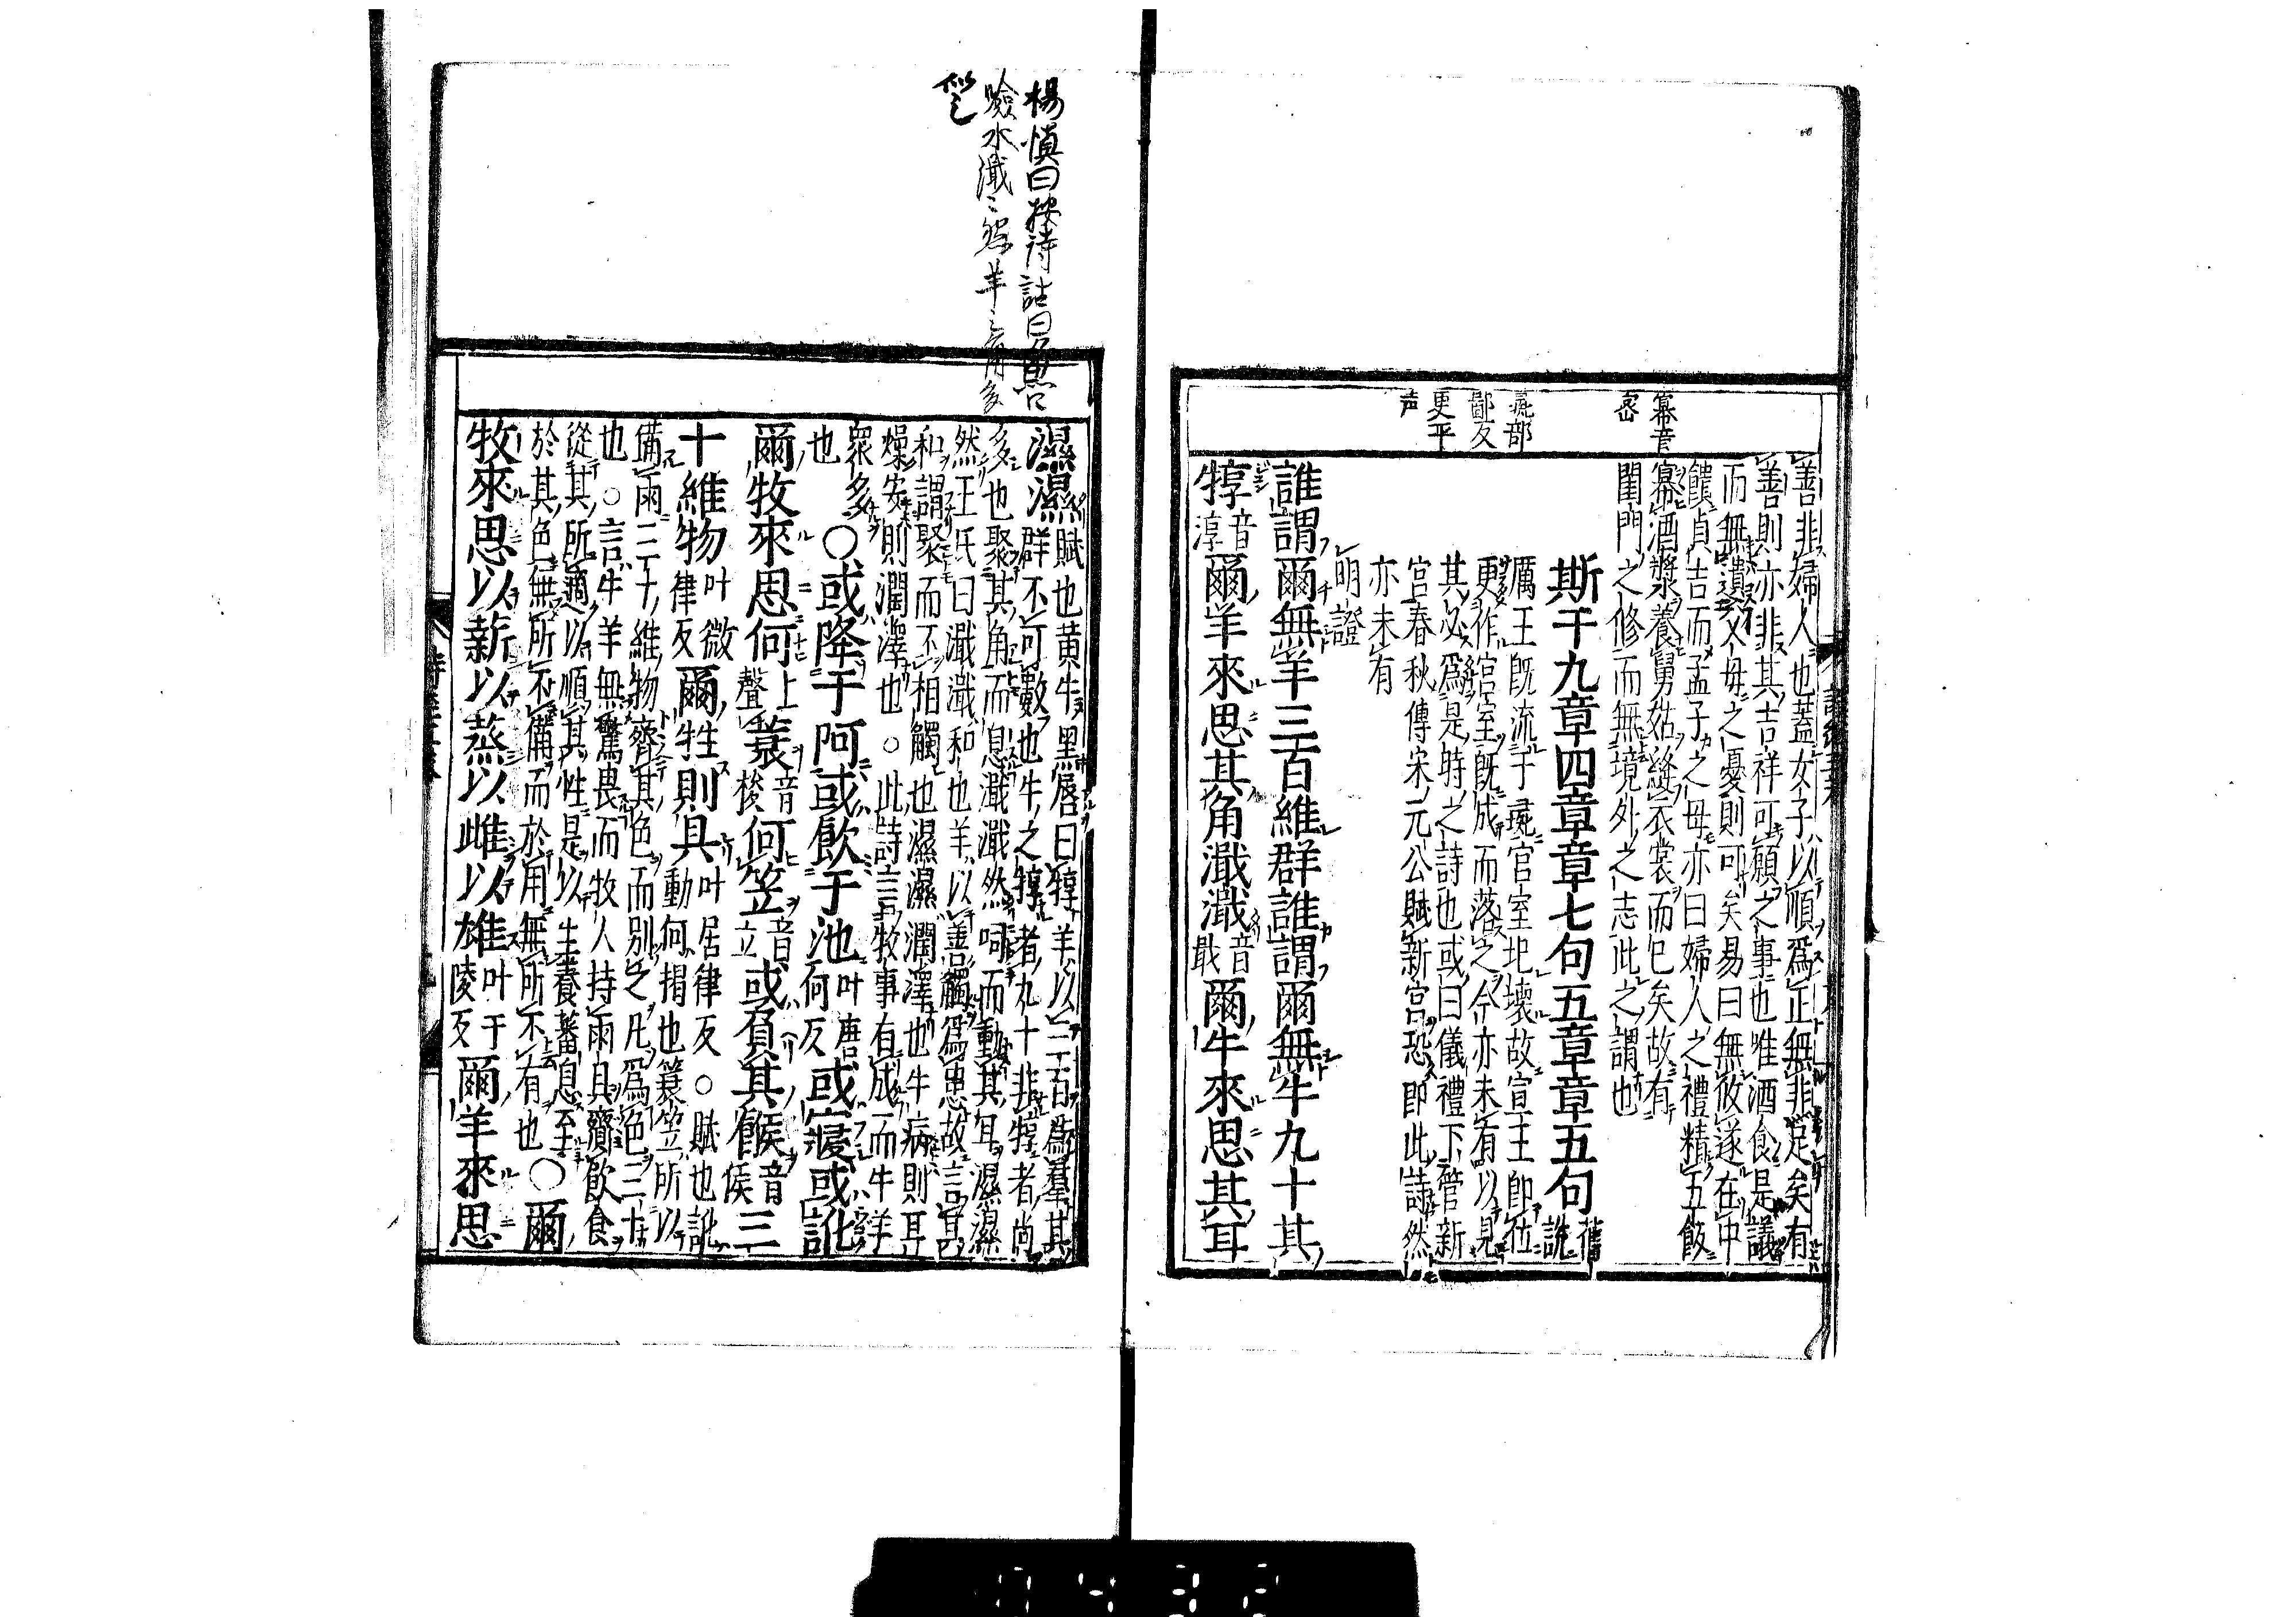 幕音
密
厞部
鄙反
更平
声
善非婦人也蓋女子以順爲正無非足矣有
善則亦非其吉祥可願之事也唯酒食是議
而無遺父母之憂則可矣易曰無攸遂在中
饋貞吉而孟子之母亦曰婦人之禮精五飯
冪酒漿養舅姑縫衣裳而已矣故有
閨門之修而無境外之志此之謂也
斯干九章四章章七句五章章五句 舊說
厲王旣流于彘宮室圯壞故宣王卽位
更作宮室旣成而落之今亦未有以見
其必爲是時之詩也或曰儀禮下管新
宮春秋傳宋元公賦新宮恐卽此詩然
亦未有
明證
誰謂爾無羊三百維群誰謂爾無牛九十其
犉音淳爾羊來思其角濈濈音戢爾牛來思其耳
楊慎曰按詩詁曰魚口
噞水濈〻然羊之角多
似之
濕濕賦也黃牛黑唇曰犉羊以三百爲羣其
群不可數也牛之犉者九十非犉者尚
多也聚其角而息濈濈然呞而動其耳濕濕
然王氏曰濈濈和也羊以善觸爲患故言其
和謂聚而不相觸也濕濕潤澤也牛病則耳
燥安則潤澤也○此詩言牧事有成而牛羊
衆多
也 ○或降于阿或飲于池叶唐何反或寢或訛
爾牧來思何上聲蓑音梭何笠音立或負其餱音侯三
十維物叶微律反爾牲則具叶居律反○賦也訛動何揭也蓑笠所以
備雨三十維物齊其色而別之凡爲色三十
也○言牛羊無驚畏而牧人持雨具齎飲食
從其所適以順其性是以生養蕃息至
於其色無所不備而於用無所不有也○爾
牧來思以薪以蒸以雌以雄叶于陵反爾羊來思